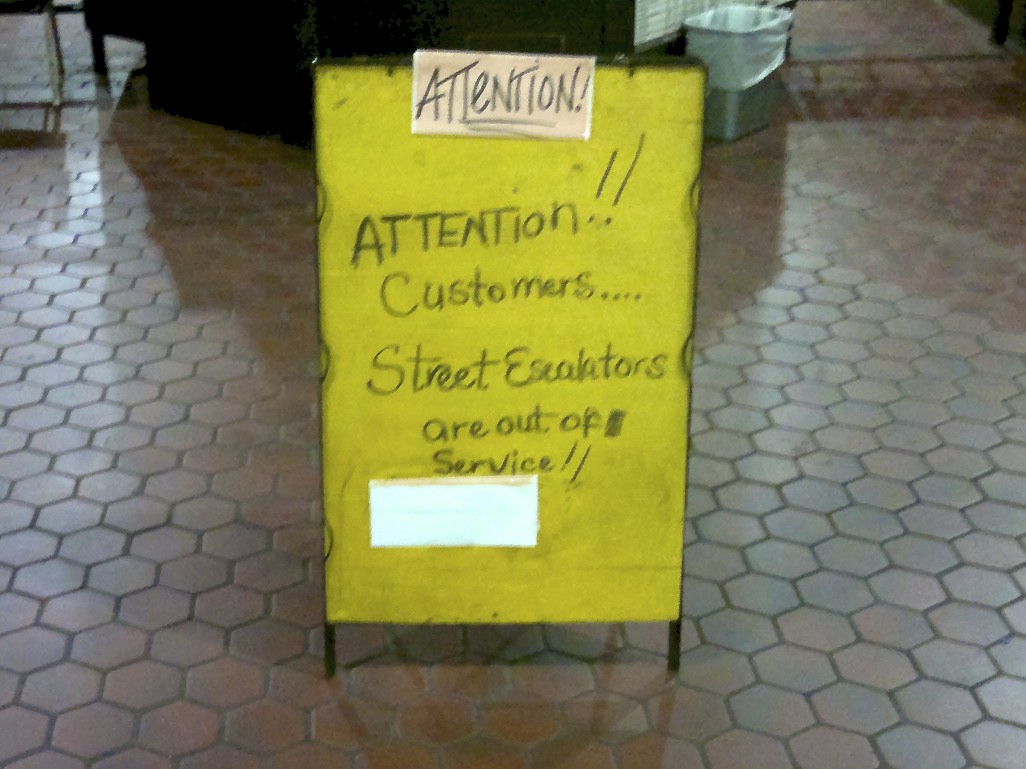 ATTENTION!
ATTENTION!!
Customers....
Street Escalators
are out of
Service!!